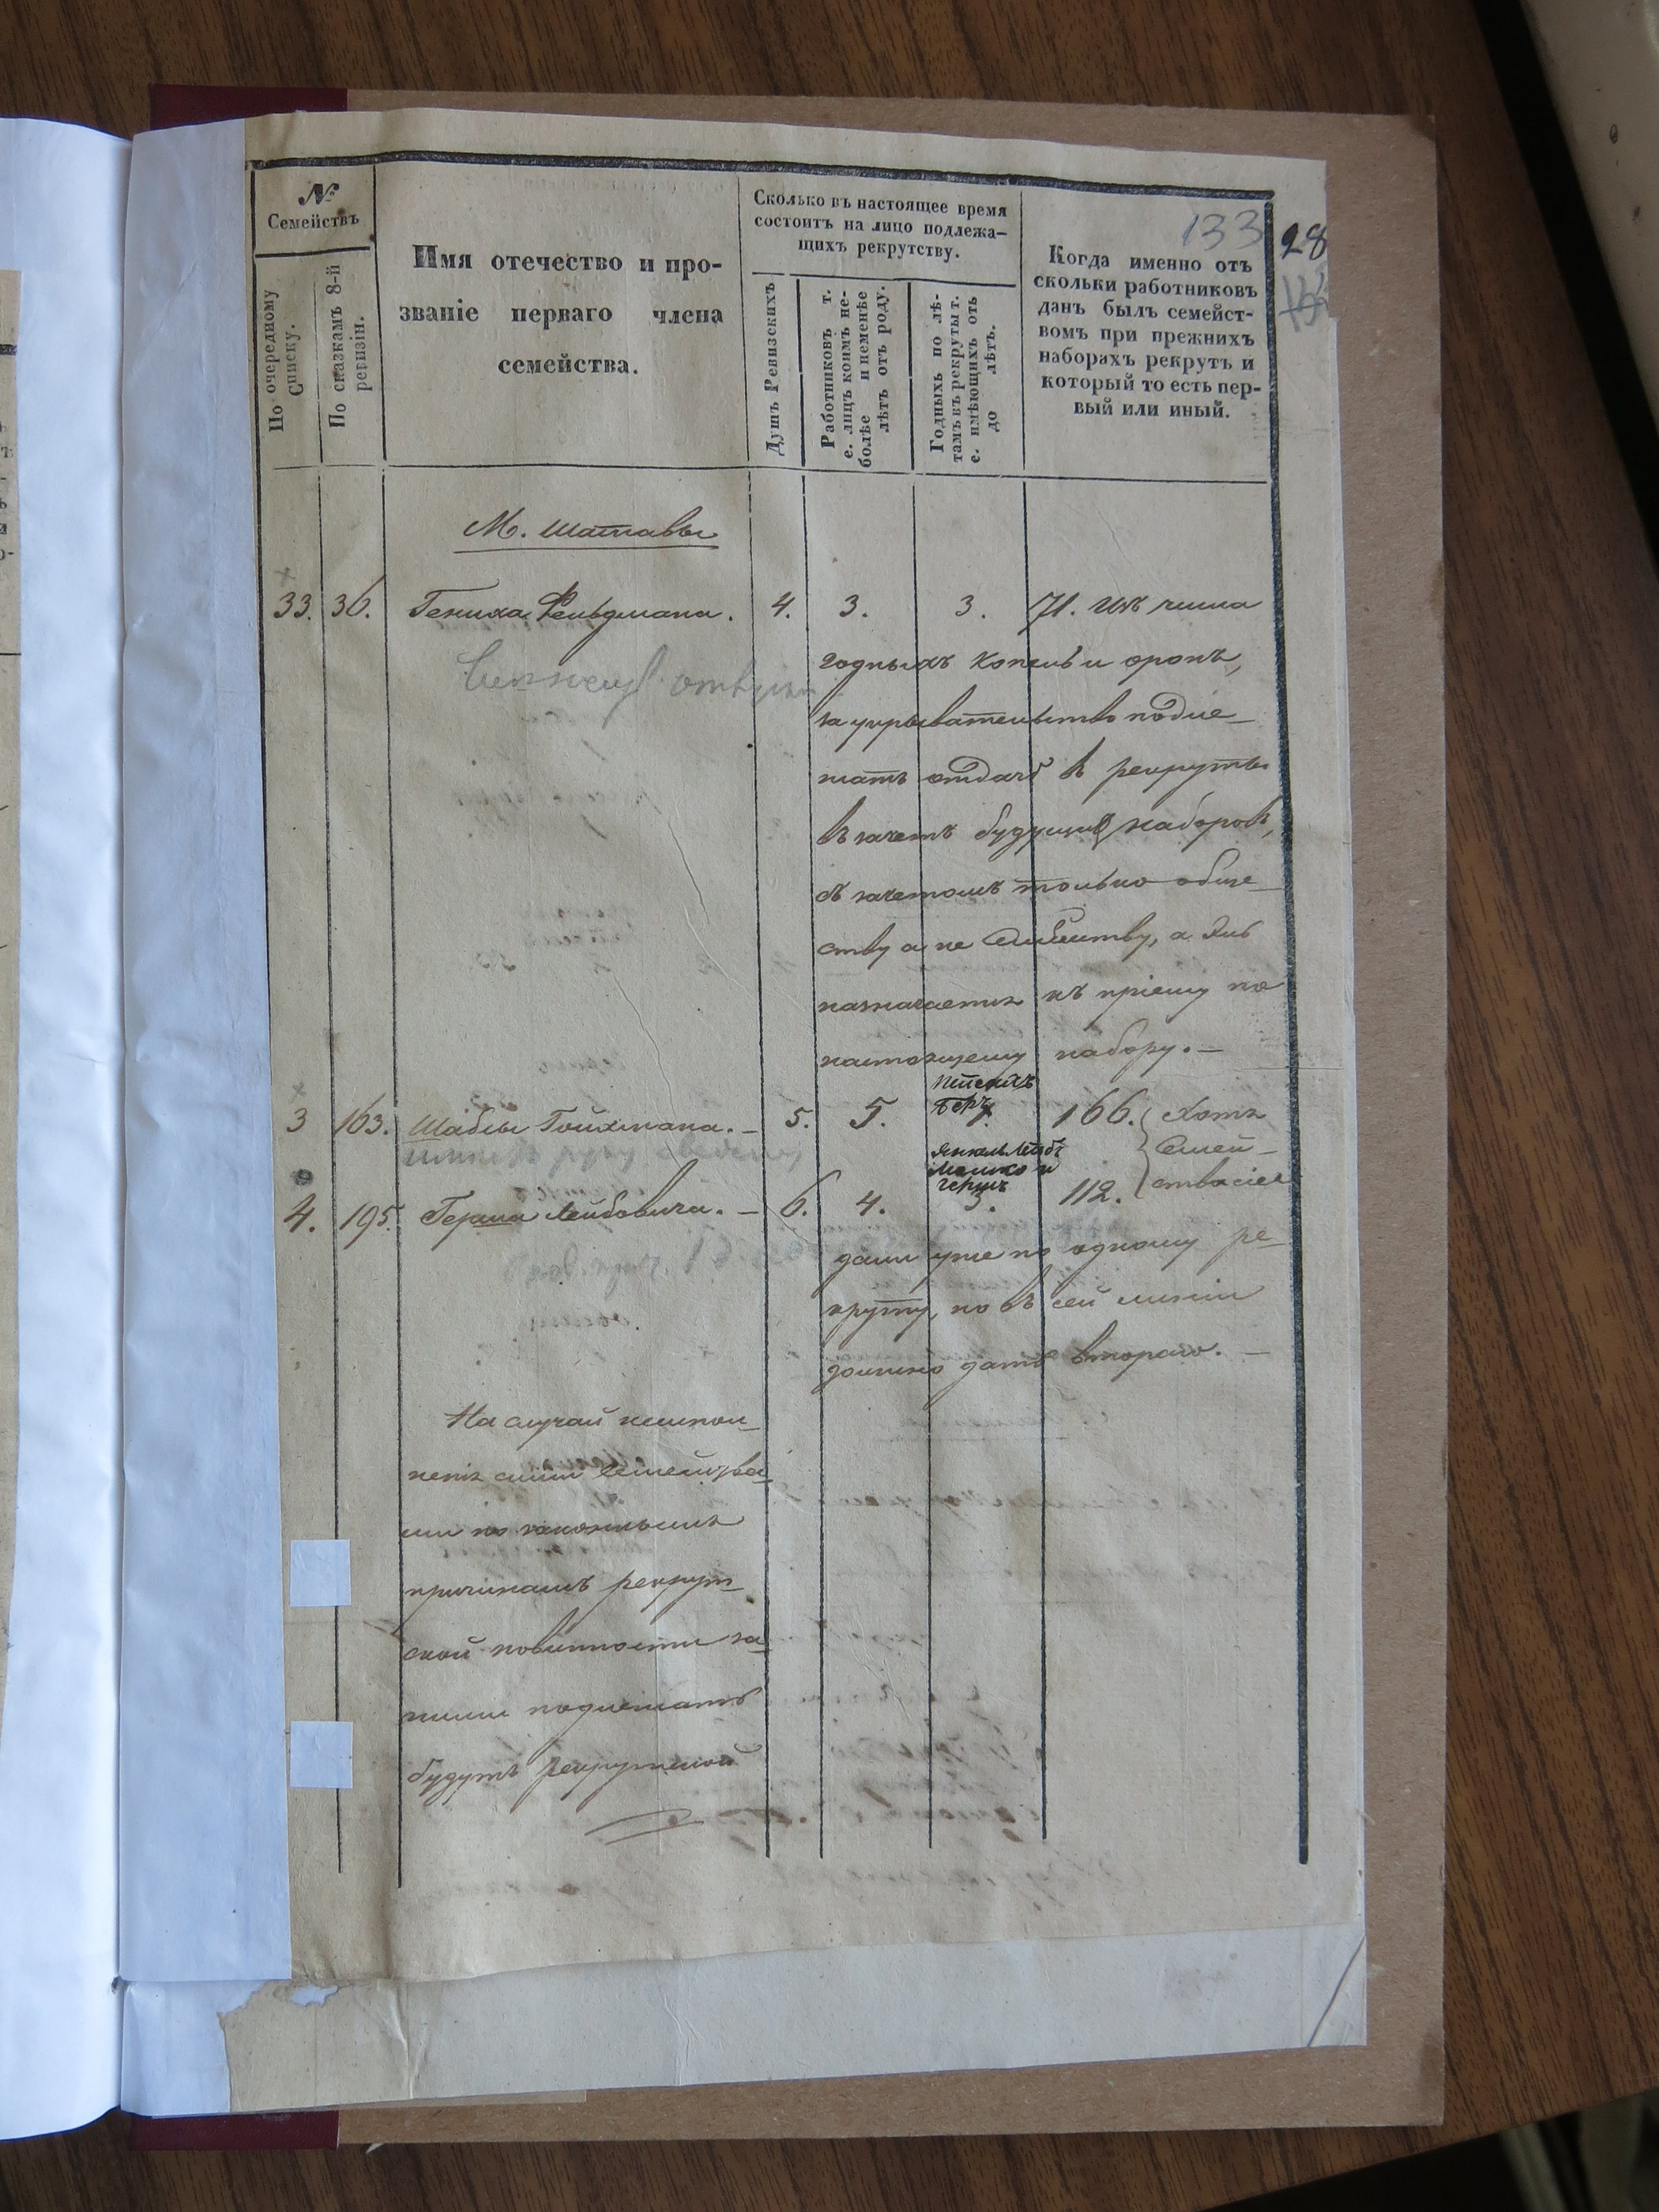 133
28
№
Семействъ
По очередному Списку.
По сказкамъ 8-й ревизіи.
Имя отечество и про-
званіе перваго члена
семейства.
Сколько въ настоящее время
состоитъ на лицо подлежа-
щихъ рекрутству.
Душъ Ревизскихъ
Работниковъ т.
е. лицъ коимъ не-
болѣе и неменѣе
лѣтъ отъ роду.
Годныхъ по лѣ-
тамъ въ рекруты т.
е. имѣющихъ отъ
до лѣтъ.
Когда именно отъ
сколки работниковъ
данъ былъ семейст-
вомъ при прежнихъ
наборахъ рекрутъ и
который то есть пер-
вый или иный.
М. Шатавы
33. 36. Гениха Фельдмана. 4. 3. 3. 71. Изъ числа
годныхъ и
за укрывательство подле-
жатъ отдачѣ въ рекруты
въ зачетъ будущихъ наборовъ,
съ зачетомъ только обще-
ству а не семейству, а
назначается къ пріему по
настоящему набору. —
Беръ
3 163. Шабсы Гойхмана. — 5. 5. 166. Хотя
Янкель Лейбъ
Мошко и
Гершъ
Семей-
4. 195. Герша Лейбовича. — 6. 4. 3. 112. ства сіи
дали уже по одному ре-
круту, но въ сей линіи
должно дать втораго. —
На случай неиспол-
ненія сими семейства-
ми по законнымъ
причинамъ рекрут-
ской повинности за
ними подлежать
будутъ рекрутской